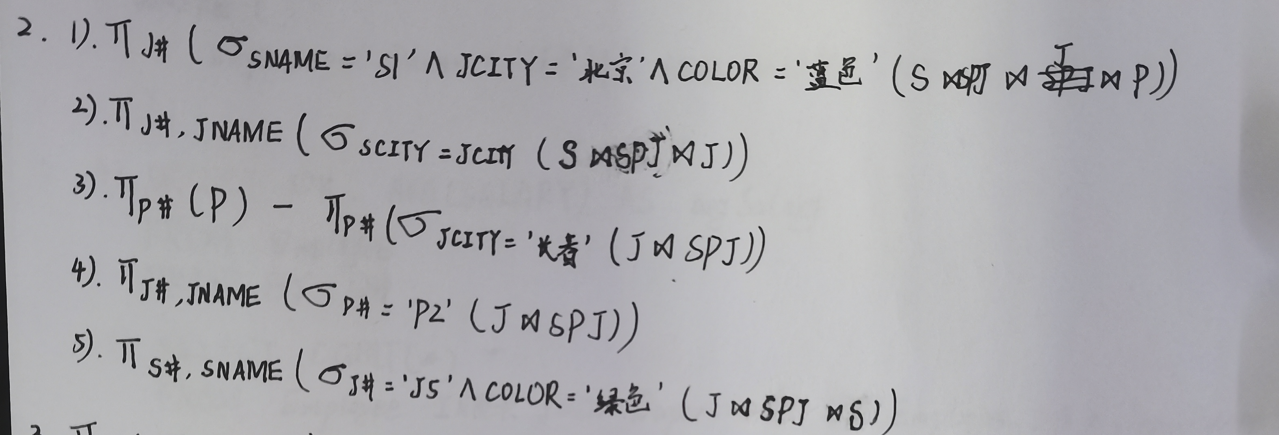 2. 1). π J# ( σ SNAME = 'S1' ∧ JCITY = '北京' ∧ COLOR = '蓝色' ( S ⋈ SPJ ⋈ J ⋈ P ))
2). π J#, JNAME ( σ SCITY = JCITY ( S ⋈ SPJ ⋈ J ))
3). π P# (P) − π P# ( σ JCITY = '长春' ( J ⋈ SPJ ))
4). π J#, JNAME ( σ P# = 'P2' ( J ⋈ SPJ ))
5). π S#, SNAME ( σ J# = 'J5' ∧ COLOR = '绿色' ( J ⋈ SPJ ⋈ S ))